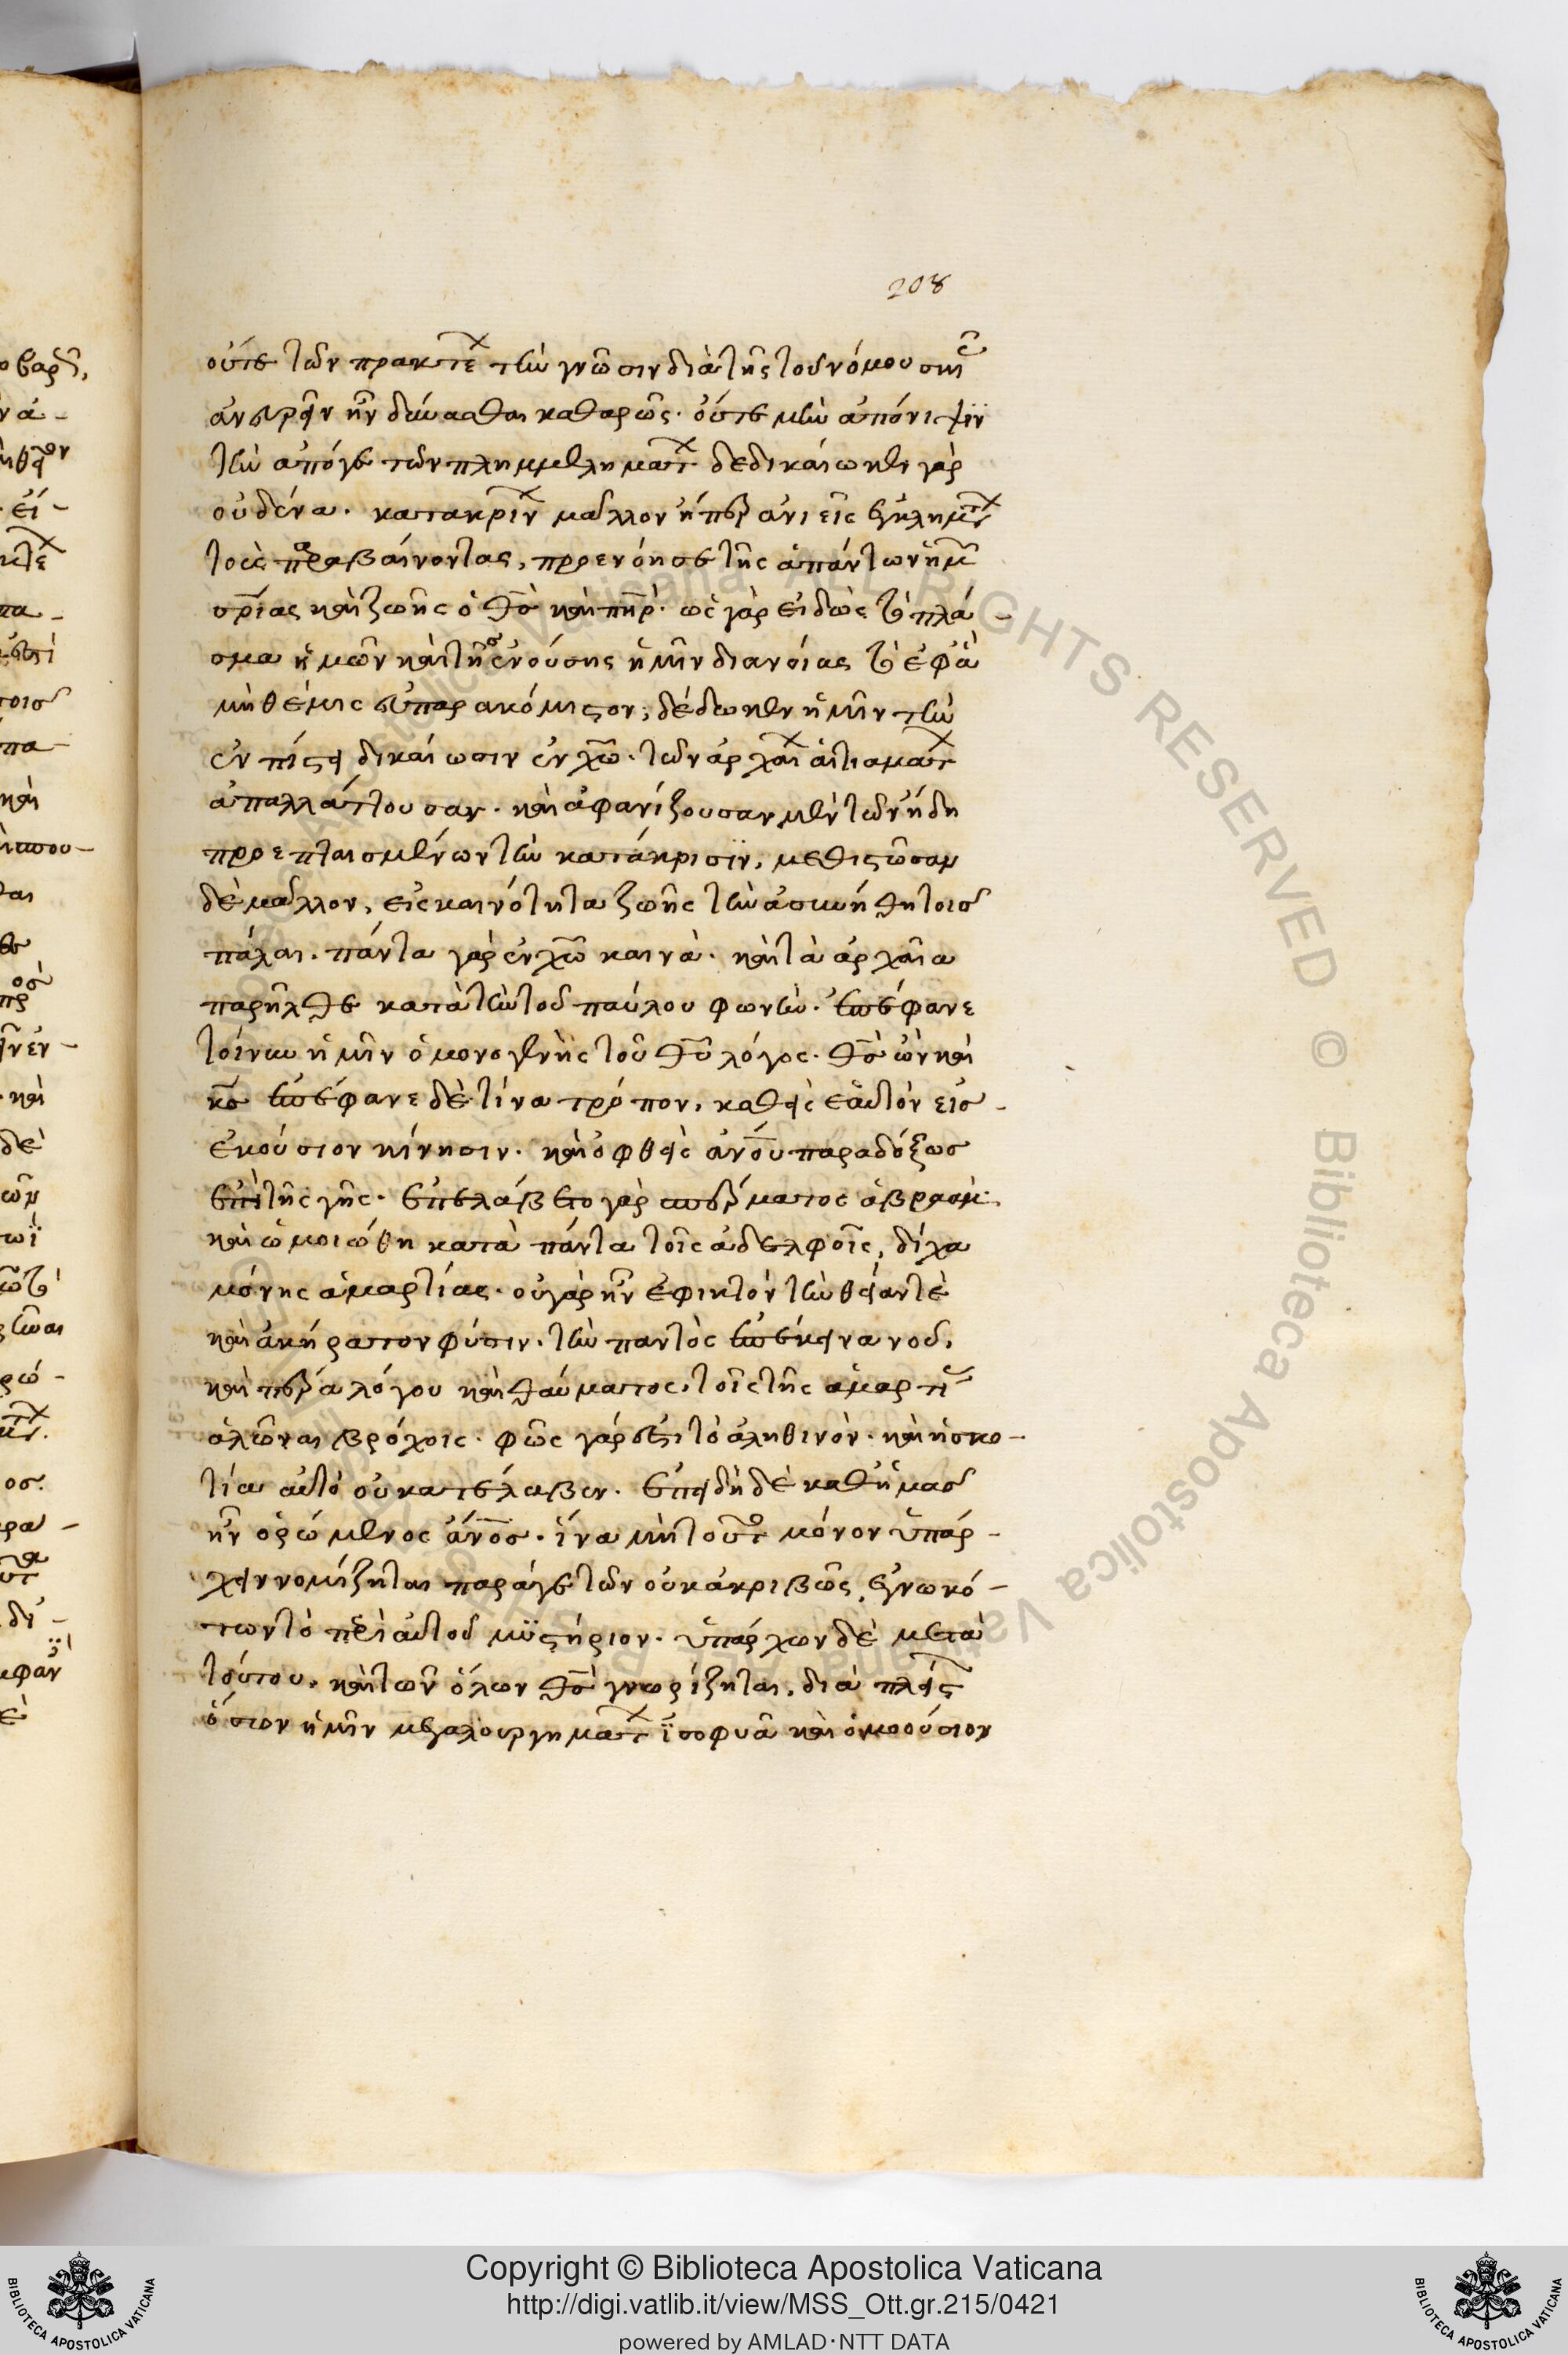 208
οὔτε τῶν πρακτέ τὴν γνῶσιν διὰ τῆς τοῦ νόμου
ἀνευρεῖν ἦν δύνασθαι καθαρῶς. οὔτε μὴν ἀπόνιψιν
τὴν ἀπόγε τῶν πλημμεληματ δεδικαίωκε γὰρ
οὐδένα. κατακρίν μᾶλλον ἤπερ ἀνιεὶς ἐγκλημτ
τοὺς παραβαίνοντας, προενόησε τῆς ἁπάντων ἡμ
σρίας καὶ ζωῆς ὁ θσ καὶ πηρ. ὡς γὰρ εἰδὼς τὸ πλά-
σμα ἡμῶν καὶ τῆς ἐνούσης ἡμῖν διανοίας τὸ ἐφ' ἃ
μὴ θέμις εὐπαρακόμιστον, δέδωκεν ἡμῖν τὴν
ἐν πίστει δικαίωσιν ἐν χω. τῶν ἀρχαί αἰτιαματ
ἀπαλλάττουσαν. καὶ ἀφανίζουσαν μὲν τῶν ἤδη
προεπταισμένων τὴν κατάκρισιν, μεθιστῶσαν
δὲ μᾶλλον, εἰς καινότητα ζωῆς τὴν ἀσυνήθη τοῖσ
πάλαι. πάντα γὰρ ἐν χω καινά. καὶ τὰ ἀρχαῖα
παρῆλθε κατὰ τὴν τοῦ παύλου φωνήν. ἐπέφανε
τοίνυν ἡμῖν ὁ μονογενὴς τοῦ θυ λόγος. θσ ὢν καὶ
κσ ἐπέφανε δὲ τίνα τρόπον, καθεὶς ἑαυτὸν εἰσ-
ἑκούσιον κένωσιν. καὶ ὀφθεὶς ἀνου παραδόξως
ἐπὶ τῆς γῆς. ἐπελάβετο γὰρ σπέρματος ἀβραάμ.
καὶ ὡμοιώθη κατὰ πάντα τοῖς ἀδελφοῖς, δίχα
μόνης ἁμαρτίας. οὐ γὰρ ἦν ἐφικτὸν τὴν θείαν τὲ
καὶ ἀκήρατον φύσιν. τὴν παντὸς ἐπέκεινα νοῦ,
καὶ πέρα λόγου καὶ θαύματος, τοῖς τῆς ἁμαρτι
ἁλῶναι βρόχοις. φῶς γάρ ἐστι τὸ ἀληθινόν. καὶ ἡ σκο-
τία αὐτὸ οὐ κατέλαβεν. ἐπειδὴ δὲ καθ' ἡμᾶσ
ἦν ὁρώμενος ἀνοσ. ἵνα μὴ τοῦτο μόνον ὑπάρ-
χειν νομίζηται παράγε τῶν οὐκ ἀκριβῶς, ἐγνωκό-
των τὸ περὶ αὐτοῦ μϋστήριον. ὑπάρχων δὲ μετὰ
τούτου, καὶ τῶν ὅλων θσ γνωρίζηται, διὰ πλείστ
ὅσων ἡμῖν μεγαλουργηματ ϊσοφυᾶ καὶ ὁμοούσιον
Copyright © Biblioteca Apostolica Vaticana
http://digi.vatlib.it/view/MSS_Ott.gr.215/0421
powered by AMLAD·NTT DATA